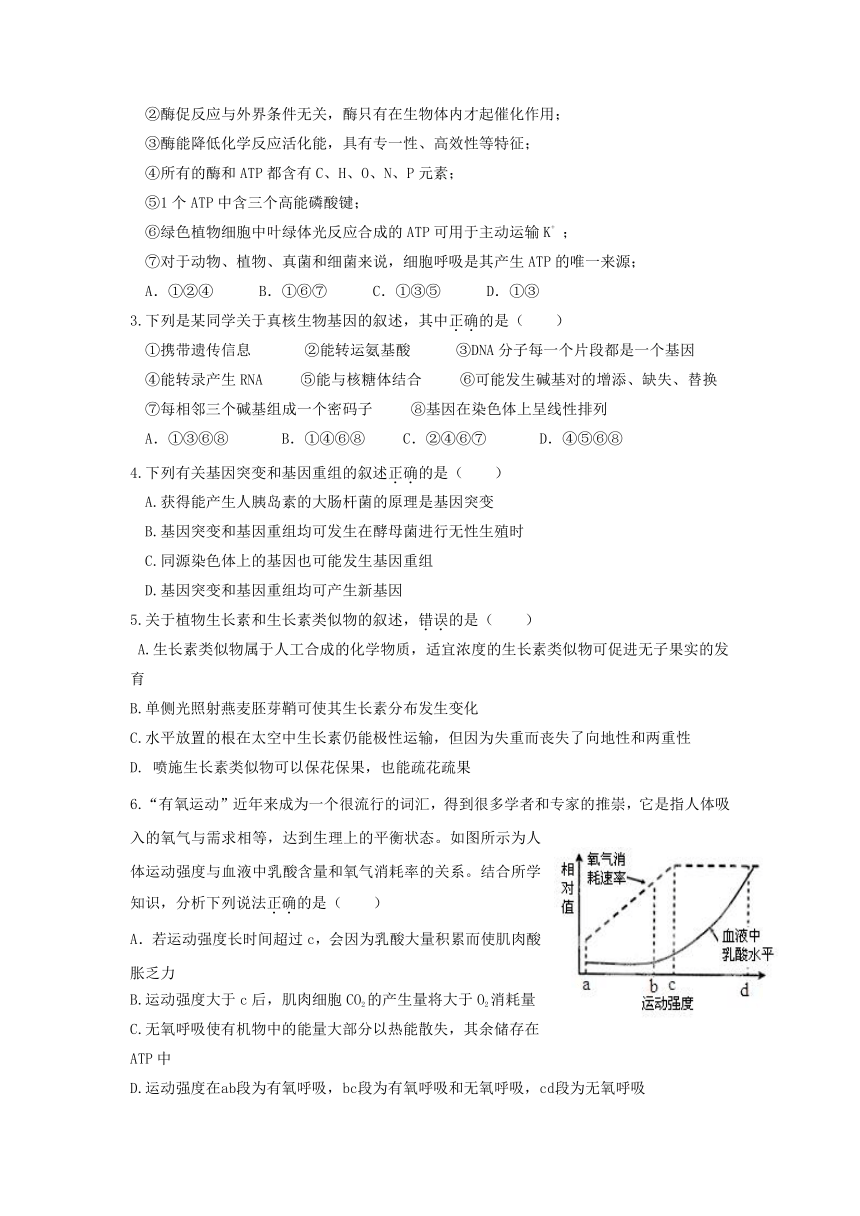 ②酶促反应与外界条件无关，酶只有在生物体内才起催化作用；
③酶能降低化学反应活化能，具有专一性、高效性等特征；
④所有的酶和 ATP 都含有 C、H、O、N、P 元素；
⑤1 个 ATP 中含三个高能磷酸键；
⑥绿色植物细胞中叶绿体光反应合成的 ATP 可用于主动运输 K⁺ ；
⑦对于动物、植物、真菌和细菌来说，细胞呼吸是其产生 ATP 的唯一来源；
A．①②④ B．①⑥⑦ C．①③⑤ D．①③
3.下列是某同学关于真核生物基因的叙述，其中正确的是（ ）
①携带遗传信息 ②能转运氨基酸 ③DNA 分子每一个片段都是一个基因
④能转录产生 RNA ⑤能与核糖体结合 ⑥可能发生碱基对的增添、缺失、替换
⑦每相邻三个碱基组成一个密码子 ⑧基因在染色体上呈线性排列
A．①③⑥⑧ B．①④⑥⑧ C．②④⑥⑦ D．④⑤⑥⑧
4.下列有关基因突变和基因重组的叙述正确的是（ ）
A.获得能产生人胰岛素的大肠杆菌的原理是基因突变
B.基因突变和基因重组均可发生在酵母菌进行无性生殖时
C.同源染色体上的基因也可能发生基因重组
D.基因突变和基因重组均可产生新基因
5.关于植物生长素和生长素类似物的叙述，错误的是（ ）
A.生长素类似物属于人工合成的化学物质，适宜浓度的生长素类似物可促进无子果实的发
育
B.单侧光照射燕麦胚芽鞘可使其生长素分布发生变化
C.水平放置的根在太空中生长素仍能极性运输，但因为失重而丧失了向地性和两重性
D. 喷施生长素类似物可以保花保果，也能疏花疏果
6.“有氧运动”近年来成为一个很流行的词汇，得到很多学者和专家的推崇，它是指人体吸
入的氧气与需求相等，达到生理上的平衡状态。如图所示为人
体运动强度与血液中乳酸含量和氧气消耗率的关系。结合所学
知识，分析下列说法正确的是（ ）
A．若运动强度长时间超过 c，会因为乳酸大量积累而使肌肉酸
胀乏力
B.运动强度大于 c 后，肌肉细胞 CO₂的产生量将大于 O₂消耗量
C.无氧呼吸使有机物中的能量大部分以热能散失，其余储存在
ATP 中
D.运动强度在ab段为有氧呼吸，bc段为有氧呼吸和无氧呼吸，cd段为无氧呼吸
相
对
值
氧气消
耗速率
血液中
乳酸水平
a b c d
运动强度